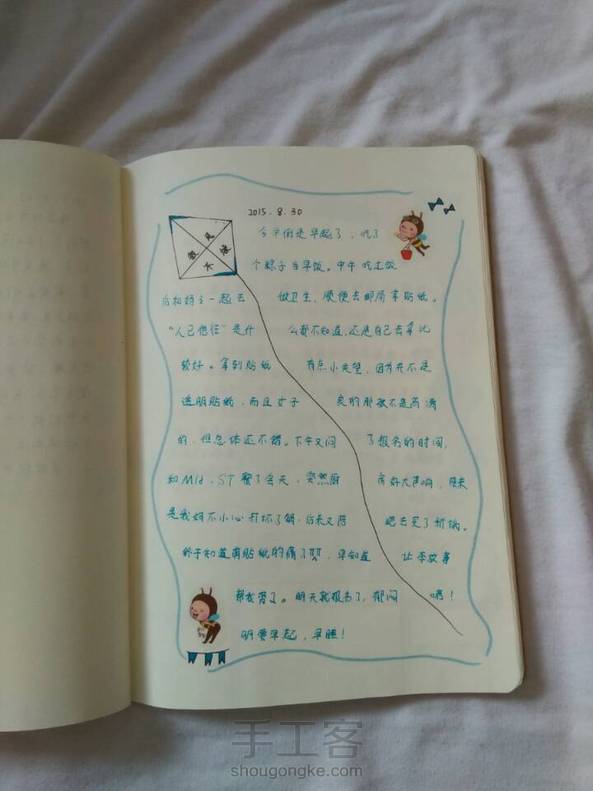 2015.8.30
今早倒是早起了，吃了
个粽子当早饭。中午吃过饭
后和妈子一起去 做卫生，顺便去邮局拿贴纸。
"人已他往"是什 么我不知道，还是自己去拿比
较好。拿到贴纸 有点小失望，因为并不是
透明贴纸，而且女子 的
的，但总体还不错。下午又问 了报名的时间，
和Mld、ST聊了会天，突然厨 房好大声响，原来
是我妈不小心打坏了锅，后来又陪 吧去买了新锅。
终于知道剪贴纸的痛了，早知道 让李故事
帮我剪了。明天就报名了，郁闷 啊！
明要早起，早睡！
手工客
shougongke.com